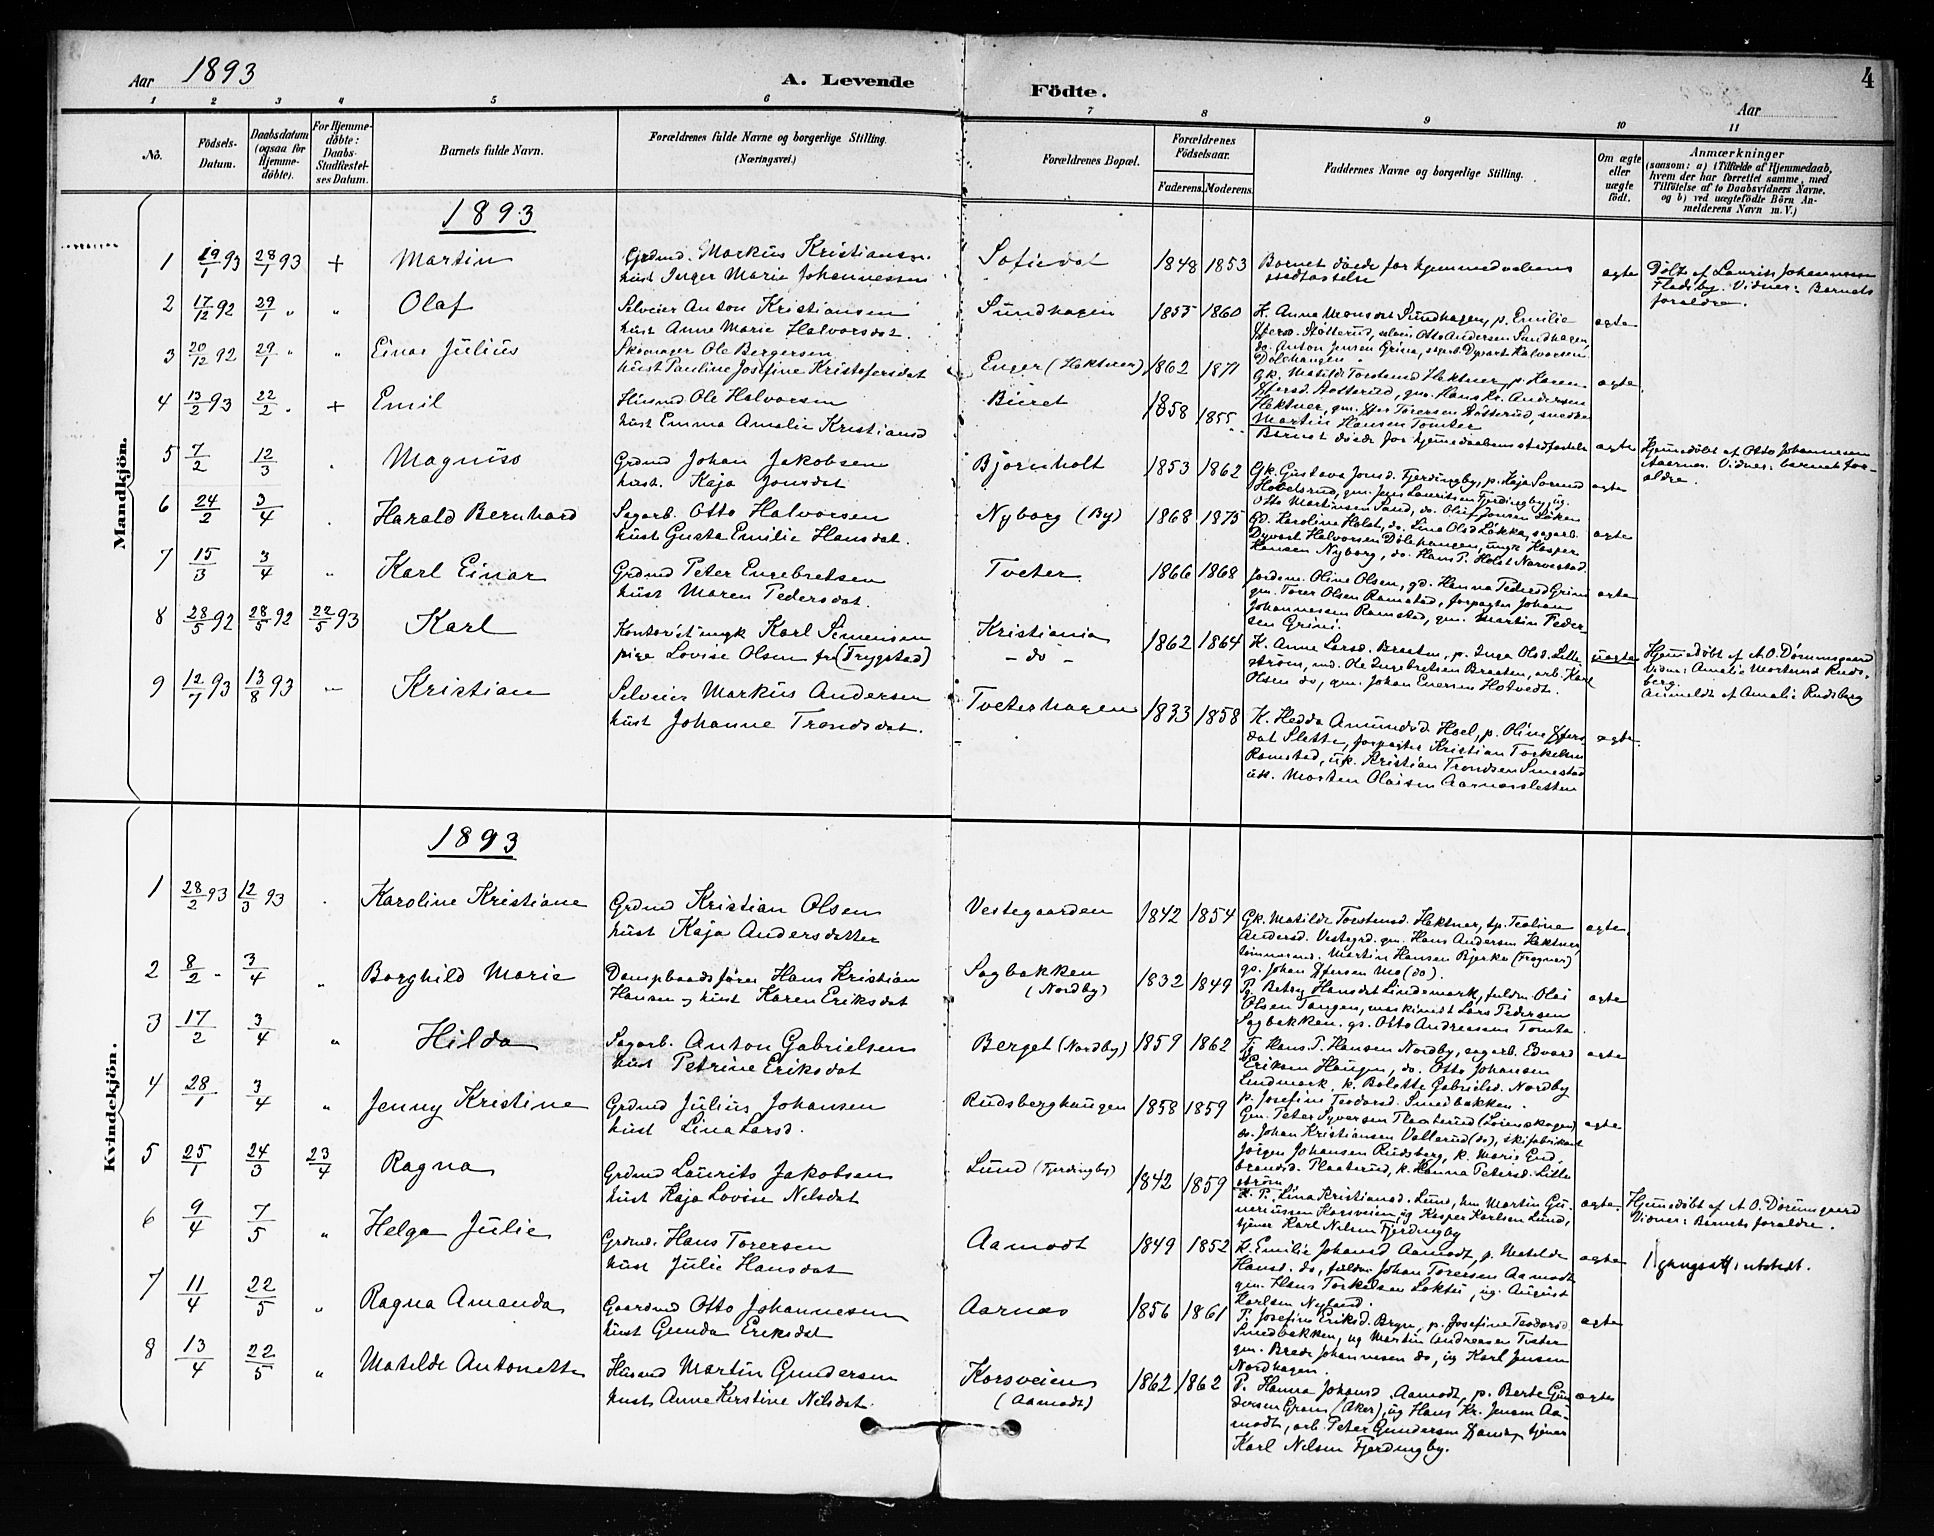 Aar 1893
A. Levende
Födte.
Aar
4
1 2 3 4 5 6 7 8 9 10 11
No.
Födsels-Datum.
Daabsdatum (ogsaa for Hjemme-döbte).
For Hjemme-döbte: Daabs-Stadfæstel-ses Datum.
Barnets fulde Navn.
Forældrenes fulde Navne og borgerlige Stilling. (Næringsvei.)
Forældrenes Bopæl.
Forældrenes Födselsaar.
Faderens. Moderens.
Faddernes Navne og borgerlige Stilling.
Om ægte eller uægte födt.
Anmærkninger
(saasom: a) i Tilfælde af Hjemmedaab,
hvem der har forrettet samme, med
Tilföielse af to Daabsvidners Navne.
og b) ved uægtefödte Börn An-
melderens Navn m. V.)
Mandkjön.
1893
1 19/1 93 28/1 93 + Martin
Grdmd. Markus Kristiansen
hust Inger Marie Johannessen
Sofiedal 1848 1853
Barnet døde før hjemmedaabens
stadfæstelse
ægte
Døbt af Laurits Johannessen
Fladeby. Vidner: Barnets
forældre.
2 17/12 92 29/1 " " Olaf
Selveier Anton Kristiansen
hust Anne Marie Halvorsdat.
Sundhagen 1855 1860
K. Anna Monsdat Sundhagen, p. Emilie
Støtterud, selvei. Otto Andersen Sundhagen,
do. Anton Jensen Grina, sagarb. Dyvart Halvorsen
Dølehaugen
ægte
3 20/12 92 29/1 " " Einar Julius
Skomager Ole Bergersen
hust Pauline Josefine Kristofersdat
Enger (Hektner) 1862 1871
Gk. Matilde Torstensd Hektner, p. Karen
Støtterud, gm. Hans Kr. Andersen
Hektner, gm. Torersen Støtterud, snedker
Martin Hansen Tomter
ægte
4 13/2 93 22/2 " + Emil
Husmd Ole Halvorsen
hust Emma Amalie Kristiansd
Bieret 1858 1855
Barnet døde før hjemmedaabens stadfæstelse
ægte
Hjemmedøbt af Otto Johannesen
Aarnes. Vidner: barnets for-
ældre.
5 7/2 12/3 " Magnus
Grdmd Johan Jakobsen
hust. Kaja Jonsdat
Bjørnholt 1853 1862
Gk. Gustava Jonsd. Fjerdingby, p. Kaja Sørensd
gm. Jens Lauritsen Fjerdingby, ug.
Otto Martinsen Sand, do. Oluf Jonsen Løken
ægte
6 24/2 3/4 " Harald Bernhard
Sagarb. Otto Halvorsen
hust Gusta Emilie Hansdat.
Nyborg (By) 1868 1875
Gd. Karoline Holst, do. Lina Olsd Løkka, sagarb.
Dyvart Halvorsen Dølehaugen, ungk Kasper
Hansen Nyborg, do. Hans P. Holst Narvestad.
ægte
7 15/3 3/4 " Karl Einar
Grdmd Peter Engebretsen
hust Maren Pedersdat.
Tveter 1866 1868
Jordem. Oline Olsen, gd. Hanna Pedersd Grini
gm. Torer Olsen Ramstad, forpagter Johan
Johannessen Ramstad, gm. Martin Peder-
sen Grini.
ægte
8 28/5 92 28/5 92 22/5 93 Karl
Kontorist ungk Karl Simensen
pige Lovise Olsen fr (Trygstad)
Kristiania
- do - 1862 1864
K. Anne Larsd. Braaten, p. Inga Olsd. Lille
strøm, md. Ole Ingebretsen Braaten, arb. Karl
Olsen do, gm. Johan Evensen Hotvedt.
uægte
Hjemmedøbt af A. O. Dørumsgaard
Vidner: Amalie Mortensd Ruds-
berg.
Anmeldt af Amalie Rudsberg
9 12/7 93 13/8 93 " Kristian
Selveier Markus Andersen
hust Johanne Trondsdat.
Tveterhagen 1833 1858
K. Hedda Amundsd Hoel, p. Oline
dat Slette, forpagter Kristian Torkelsen
Ramstad, uk. Kristian Trondsen Smestad
uk. Morten Olaisen Aarnæssletten
ægte.
Kvindekjön.
1893
1 28/2 93 12/3 93 " Karoline Kristiane
Grdmd Kristian Olsen
hust Kaja Andersdatter
Vestegaarden 1842 1854
Gk. Matilde Torstensd. Hektner, tp. Teoline
Andersd. Vestegrd. gm. Hans Andersen Hektner
tømmermd. Martin Hansen Bjerke (Frogner)
gs. Johan Mo (do).
ægte.
2 8/2 " 3/4 " Borghild Marie
Dampbaadsfører Hans Kristian
Hansen og hust Karen Eriksdat
Sagbakken
(Nordby) 1832 1849
P. Betsy Hansdat Lindemark, fuldm Olai
Olsen Tangen, maskinist Lars Pedersen
Sagbakken. gs. Otto Andreassen Tomta.
ægte
3 17/2 3/4 " Hilda
Sagarb. Anton Gabrielsen
hust Petrine Eriksdat
Berget (Nordby) 1859 1862
Hans P. Hansen Nordby, sagarb. Edvard
Eriksen Haugen, do. Otto Johansen
Lindmark, k. Bolette Gabrielsd. Nordby
p. Josefine Teodorsd. Smedbakken.
ægte
4 28/1 3/4 " Jenny Kristine
Grdmd Julius Johansen
hust Lina Larsd.
Rudsberghaugen 1858 1859
Gm. Peter Syversen Plaaterud (Lørenskogen)
do. Johan Kristiansen Vallerud (do), skifabrikant
Jørgen Johansen Rudsberg, k. Marie Eud.
brandsd. Plaaterud, k. Hanna Petersd. Lille
strøm.
ægte
5 25/1 24/3 23/4 Ragna
Grdmd Laurits Jakobsen
hust Kaja Lovise Nilsdat
Lund (Fjerdingby) 1842 1859
P. Lina Kristiansd. Lund, hm Martin Gu-
neriussen Korsveien, ug Kasper Karlsen Lund,
tjener Karl Nilsen Fjerdingby
ægte.
Hjemmedøbt af A. O. Dørumsgaard
Vidner: Barnets forældre.
6 9/4 7/5 " Helga Julie
Grdmd. Hans Torersen
hust Julie Hansdat
Aamodt 1849 1852
K. Emilie Johansd Aamodt, p. Matilde
Hansd. do, fuldm Johan Torersen Aamodt
gm. Hans Torkelsen Løkti, ug. August
Karlsen Nyland.
ægte
1 gangsatt. utstedt.
7 11/4 22/5 " Ragna Amanda
Gaardmd Otto Johannesen
hust Gunda Eriksdat
Aarnæs 1856 1861
P. Josefine Eriksd. Bryn, p. Josefine Teodorsd
Smedbakken, ug Martin Andreasen Tveter
gm. Brede Johannesen do, ug Karl Jensen
Nordhagen.
ægte
8 13/4 22/5 " Matilde Antonette
Husmd Martin Gundersen
hust Anne Kirstine Nilsdat.
Korsveien
(Aamodt) 1862 1862
P. Hanna Johansd. Aamodt, p. Berte Gun
dersen Gran (Aker), ug Hans Kr. Jensen Aa-
modt, arb. Peter Gundersen tjener
Karl Nilsen Fjerdingby.
ægte